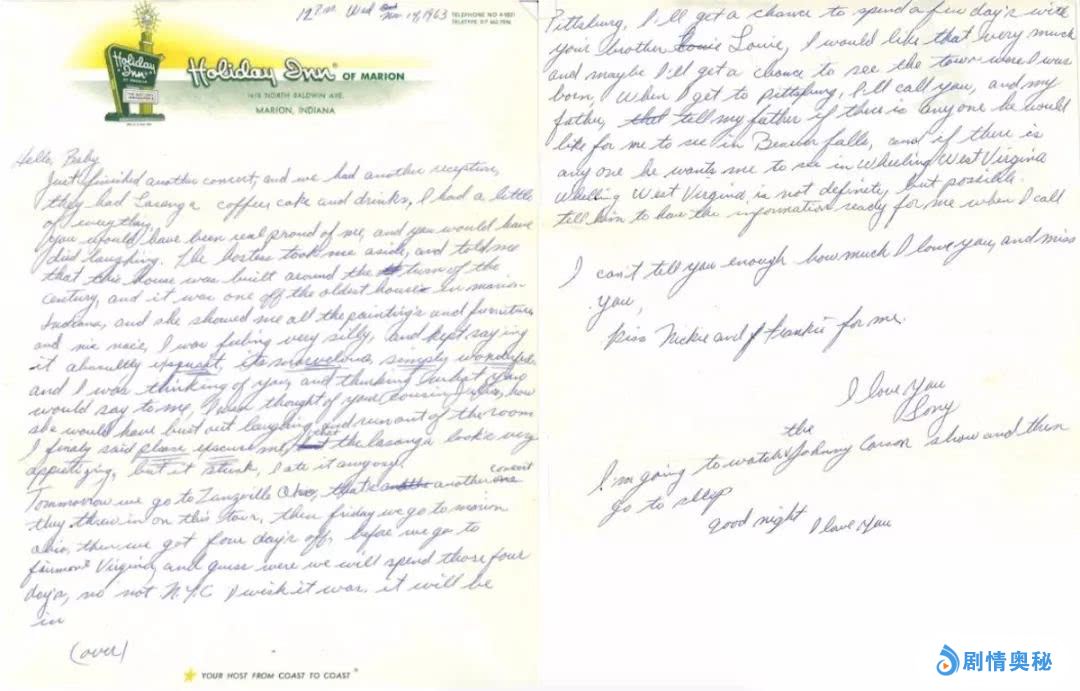 12 P.M. Wed Nov. 19, 1963
TELEPHONE NO 4-9801
Holiday Inn
Holiday Inn OF MARION
NORTH BALDWIN AVE.
MARION, INDIANA
Hello, Baby
Just finished another concert, and we had another reception,
they had Lasanga coffee cake and drinks, I had a little
of everything,
you would have been real proud of me, and you would have
died laughing. The hostess took me aside, and told me
that this house was built around the turn of the
century, and it was one off the oldest houses in marion
Indiana, and she showed me all the painting's and furniture
and nic nacs, I was feeling very silly, and kept saying
it absoultly exquisit, its marvelous, simply wonderful
and I was thinking of you, and thinking what you
would say to me, I even thought of your cousin how
she would have bust out laughing and run out of the room
I finaly said please excuse me, that the lasanga look's very
appetizing, but it stunk, I ate it anyway.
Tommorrow we go to Zanzville Ohio, that's another concert
they threw in on this tour, then friday we go to marion
ohio, then we got four day's off, before we go to
fairmont Virginia, and guess were we will spend those four
day's, no not N.Y.C I wish it was. it will be
in
(over)
YOUR HOST FROM COAST TO COAST
Pittsburg, I'll get a chance to spend a few day's with
your brother Louie, I would like that very much
and maybe I'll get a chance to see the town were I was
born, When I get to Pittsburg, I'll call you, and my
father, tell my father if there is anyone he would
like for me to see in Beaver falls, and if there is
any one he wants me to see in Wheeling West Virginia
Wheling West Virginia, is not definite, but possible.
tell him to have the information ready for me when I call
I can't tell you enough how much I love you, and miss
you,
kiss Nickie and Frankie for me.
I love you
Tony
I'm going to watch the Johnny Carson show and then
go to sleep
good night I love you
剧情奥秘